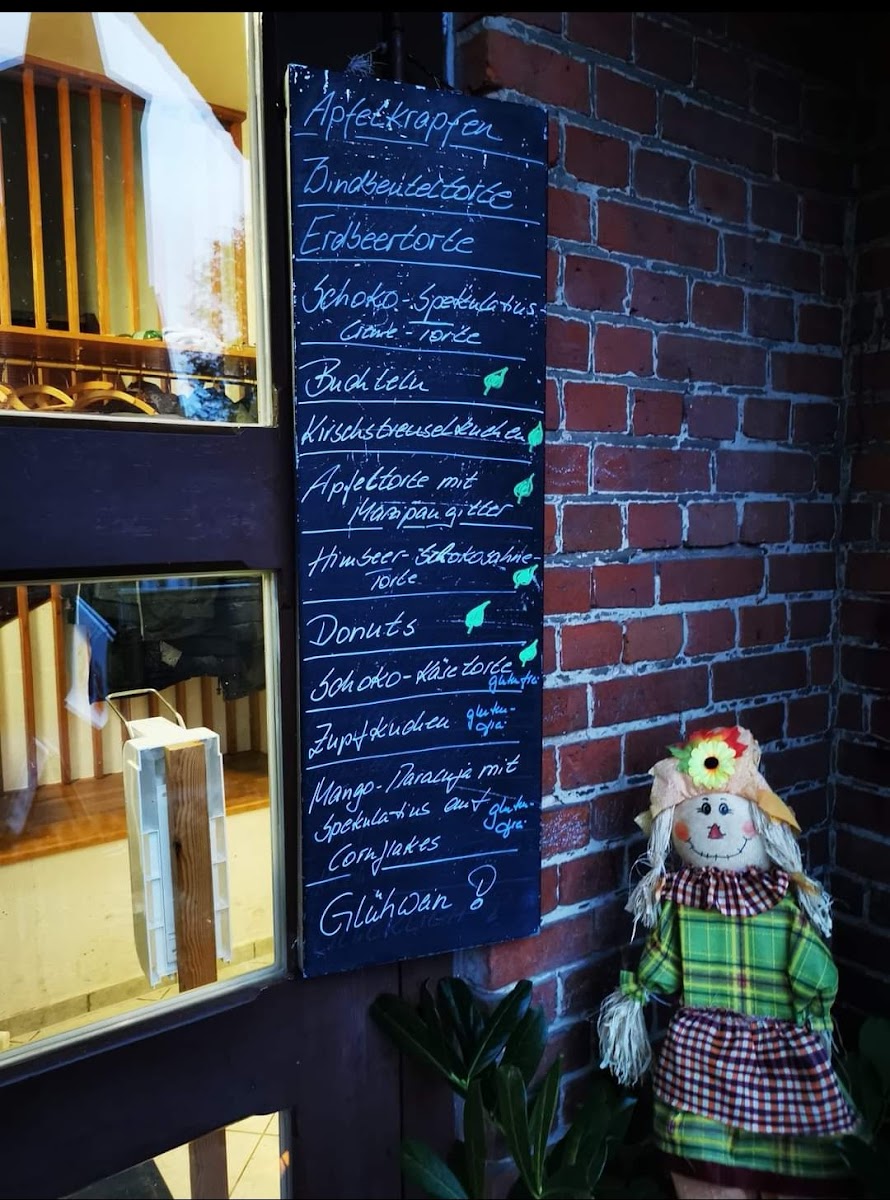 Apfelkrapfen
Windbeuteltorte
Erdbeertorte
Schoko-Spekulatius-
Creme-Torte
Buchteln
Kirschstreuselkuchen
Apfeltorte mit
Marzipangitter
Himbeer-Schokosahne-
Torte
Donuts
Schoko-Käsetorte
glutenfrei
Zupfkuchen gluten-
frei
Mango-Maracuja mit
Spekulatius auf gluten-
frei
Cornflakes
Glühwein!